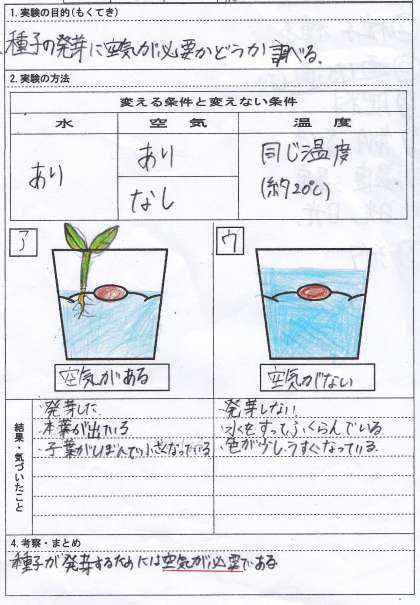 1. 実験の目的(もくてき)
種子の発芽に空気が必要かどうか調べる.
2. 実験の方法
変える条件と変えない条件
水 空気 温度
あり あり 同じ温度
なし (約20℃)
ア ウ
空気がある 空気がない
結果・気づいたこと
・発芽した ・発芽しない
・本葉が出ている ・水をすってふくらんでいる
・子葉がしぼんで小さくなっている ・色が少しうすくなっている.
4. 考察・まとめ
種子が発芽するためには空気が必要である